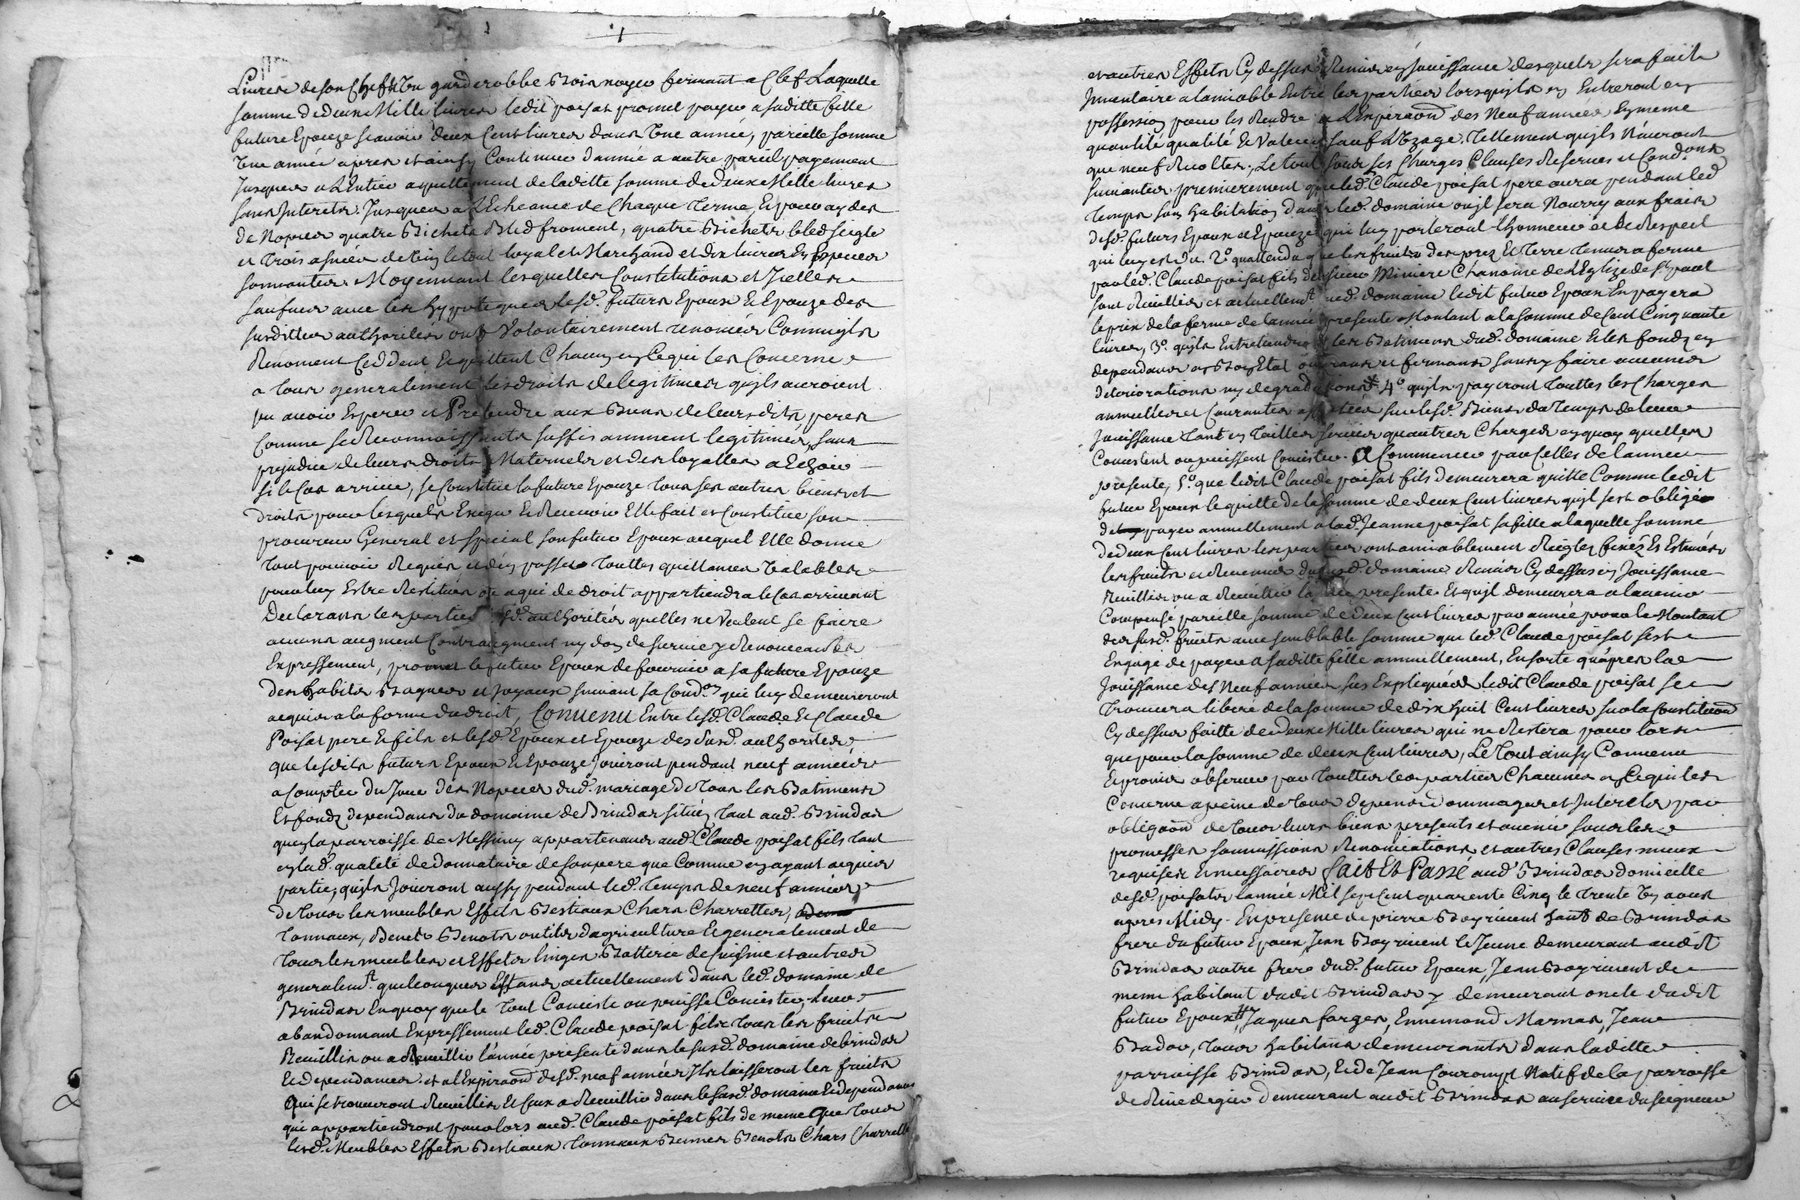 Livres de son chef & Une garderobbe Bois noyer fermant a Clef Laquelle
somme de deux Mille livres ledit poisat promet payer a saditte fille
future Epouze scavoir deux Cent livres dans Une année, pareille somme
Une année apres et ainsy Continuer d'année a autre pareil payement
Jusques a L'Entier acquittement de laditte somme de deux Mille livres
sans Interets Jusques a L'Echeance de Chaque terme, Et pour
de Nopces quatre Bichets Bled froment, quatre Bichets bled seigle
et trois asnées de Vin le tout loyal et Marchand et dix livres En Especes
sonnantes Moyennant lesquelles Constitutions et Icelles
sauf avec les hypoteques lesd. futurs Epoux & Epouze des
susdittes authorités ont Volontairement renoncés Comm'ils
Renoncent Ceddent Et quittent Chacun en Ce qui les Concerne
a tous generalement les droits de legitimes qu'ils auroient
pu avoir Esperer et Pretendre aux Biens de leurs dits peres
Comme se Reconnoissants suffisamment legitimés, sans
prejudice de leurs droits Maternels et des loyalles a Echoir
si le Cas arrive, se Constitue la future Epouze tous ses autres biens et
droits pour lesquels Exiger Et Recevoir Elle fait et Constitue son
procureur General et special son futur Epoux auquel Elle donne
tout pouvoir Requis et d'en passer touttes quittances Valables
pour luy Estre Restitués ou a qui de droit appartiendra le Cas arrivant
Declarans les parties susd. authorités quelles ne Veulent se faire
aucuns augment Contr'augment ny don de survie y Renonceants
Expressement, promet le futur Epoux de fournir a sa future Epouze
des habits Bagues et Joyaux suivant sa Cond.on qui luy demeureront
acquis a la forme du droit, Convenu Entre lesd. Claude & Claude
Poisat pere & fils et lesd. Epoux et Epouze des susd. authorités
que lesdits futurs Epoux & Epouze Joüiront pendant neuf années
a Compter du Jour des Nopces dud. mariage de tous les Batiments
Et fondz dependans du domaine de Brindas situé, tant aud. Brindas
qu'en la parroisse de Messimy appartenans aud. Claude poisat fils tant
en lad. qualité de donnataire de son pere que Comme en ayant acquis
partie, qu'ils Joüiront aussy pendant led. temps de neuf années
de tous les meubles Effets Bestiaux Chars Charrettes,
tonneaux, Bennes Benots outils d'agriculture & generalement de
tous les meubles et Effets linges Batterie de Cuisine et autres
generalem.t quelconques Estans actuellement dans led. domaine de
Brindas En quoy que le tout Consiste ou puisse Consister, leur
abandonnant Expressement led. Claude poisat fils tous les fruits
Recuillis ou a Recuillir l'année presente dans le susd. domaine de brindas
& dependances et a l'Expiraon desd. neuf années Ils laisseront les fruits
qui se trouveront Recuillis Et ceux a Recuillir dans le susd. domaine & dependances
qui appartiendront pour lors aud. Claude poisat fils de meme que tous
lesd. Meubles Effets Bestiaux tonneaux Bennes Benots Chars Charrettes
et autres Effets Cy dessus Remis en Joüissance desquels sera fait
Inventaire a l'amiable Entre les parties lorsqu'ils en Entreront en
possession pour les Rendre a L'Expiraon des Neuf années En meme
quantité qualité & Valeur sauf L'Uzage, tellement qu'ils N'auront
que neuf Recoltes. Le tout sous les Charges Clauses Reserves et Cond.ons
suivantes premierement que led. Claude poisat pere aura pendant led.
temps son habitation dans led. domaine ou il sera Nourry aux frais
desd. futurs Epoux et Epouze qui luy porteront l'honneur & le Respect
qui luy est du 2.° qu'attendu que les fruits des prez & terre tenus a ferme
par led. Claude poisat fils de sieur Miniere Chanoine de l'Eglize de St paul
sont Recuillis et actuellem.t aud. domaine ledit futur Epoux En payera
le prix de la ferme de l'année presente Montant a la somme de Cent Cinquante
livres, 3.° qu'ils Entretiendront les Batimens dud. domaine & les fonds en
dependans en Bon Etat ouvrans et fermans sans y faire aucunes
deteriorations ny degradations 4.° qu'ils payeront touttes les Charges
annuelles et Courantes affectées sur lesd. Biens du temps de leur
Joüissance tant en tailles servies qu'autres Charges en quoy qu'elles
Consistent ou puissent Consister. a Commencer par Celles de l'année
presente, 5.° que ledit Claude poisat fils demeurera quitte Comme ledit
futur Epoux le quitte de la somme de deux Cent livres qu'il s'est obligé
de payer annuellement a lad. Jeanne poisat sa fille a laquelle somme
de deux Cent livres les parties ont amiablement Réglez fixez Et Estimés
les fruits et Revenus du susd. domaine Remis Cy dessus en Joüissance
Recuillis ou a Recuillir la ditte presente Et qu'il demeurera a l'avenir
Compensé pareille somme de deux Cent livres par année pour le Montant
des susd. fruits avec semblable somme que led. Claude poisat s'est
Engagé de payer a saditte fille annuellement, En sorte qu'apres la
Joüissance des Neuf années sus Expliquées ledit Claude poisat se
trouvera liberé de la somme de dix huit Cent livres sur la Constituaon
Cy dessus faitte de deux Mille livres qui ne Restera pour lors
que pour la somme de deux Cent livres, Le tout ainsy Convenu
& promis observer par touttes les parties Chacunes en Ce qui les
Concerne a peine de tous depens dommages et Interets par
obligaon de tous leurs biens presents et avenir sous les
promesses soumissions Renonciations et autres Clauses mieux
requises & necessaires Fait Et Passé aud. Brindas domicille
desd. poisats l'année Mil sept cent quarente Cinq le trente Un aoust
apres Midy. En presence de pierre Bayrivent hant. de Brindas
frere du futur Epoux, Jean Bayrivent le Jeune demeurant audit
Brindas autre frere dud. futur Epoux, Jean Bayrivent de
meme habitant dudit Brindas y demeurant oncle dudit
futur Epoux Jaques farges, Ennemond Marnas, Jean
Badou, tous habitans demeurants dans laditte
parroisse Brindas, Et de Jean Courompt Natif de la parroisse
de Rive de gier demeurant audit Brindas au service du seigneur